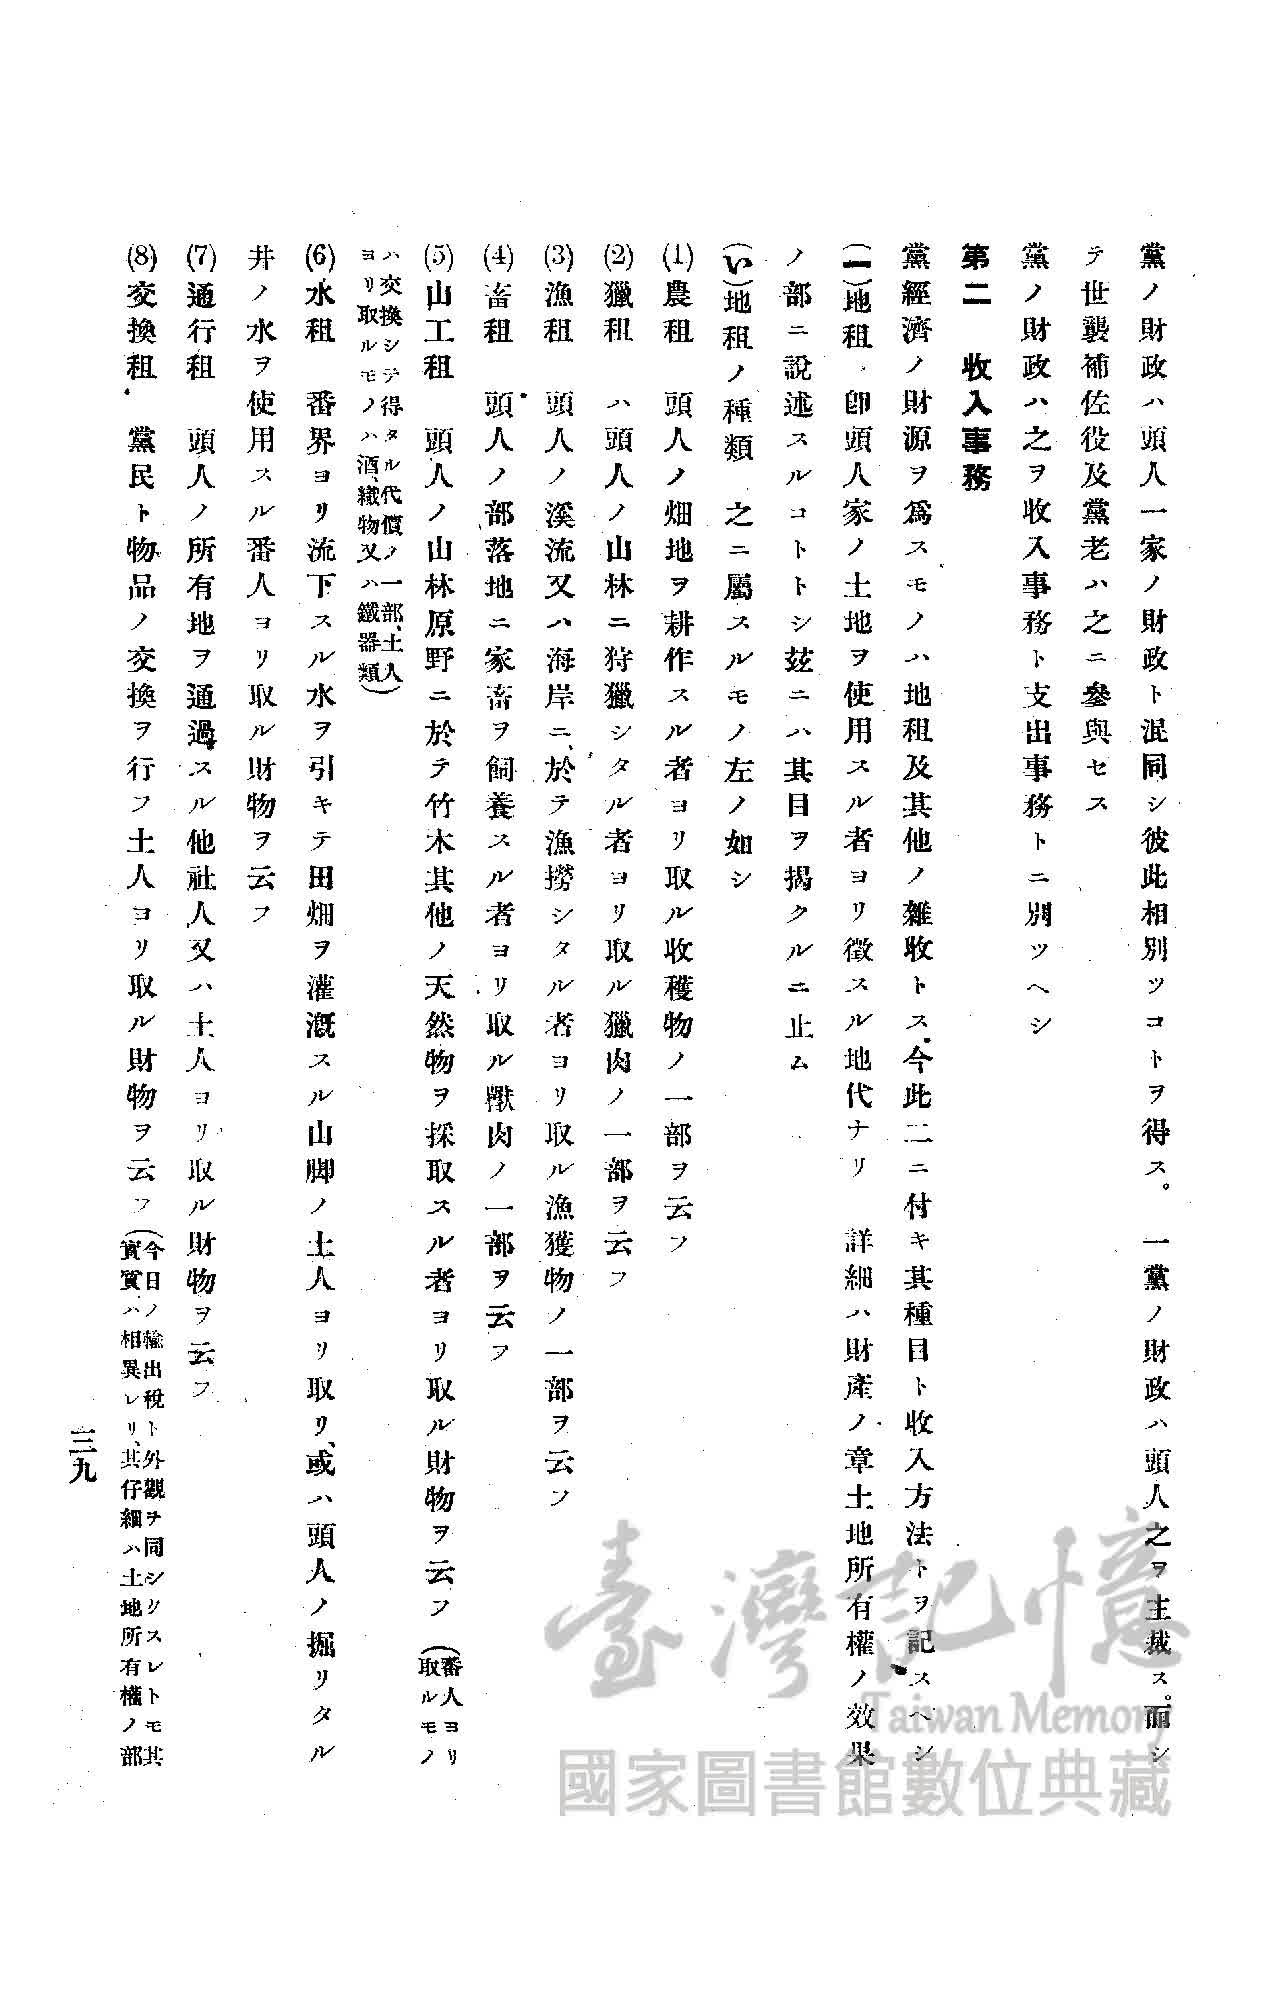 黨ノ財政ハ頭人一家ノ財政ト混同シ彼此相別ツコトヲ得ス。一黨ノ財政ハ頭人之ヲ主裁ス。而シ
テ世襲補佐役及黨老ハ之ニ參與セス
黨ノ財政ハ之ヲ收入事務ト支出事務トニ別ツヘシ
第二　收入事務
黨經濟ノ財源ヲ爲スモノハ地租及其他ノ雜收トス今此二ニ付キ其種目ト收入方法トヲ記スヘシ
(一)地租　卽頭人家ノ土地ヲ使用スル者ヨリ徵スル地代ナリ　詳細ハ財產ノ章土地所有權ノ效果
ノ部ニ說述スルコトトシ玆ニハ其目ヲ揭クルニ止ム
(い)地租ノ種類　之ニ屬スルモノ左ノ如シ
(1)農租　頭人ノ畑地ヲ耕作スル者ヨリ取ル收穫物ノ一部ヲ云フ
(2)獵租　ハ頭人ノ山林ニ狩獵シタル者ヨリ取ル獵肉ノ一部ヲ云フ
(3)漁租　頭人ノ溪流又ハ海岸ニ於テ漁撈シタル者ヨリ取ル漁獲物ノ一部ヲ云フ
(4)畜租　頭人ノ部落地ニ家畜ヲ飼養スル者ヨリ取ル獸肉ノ一部ヲ云フ
(5)山工租　頭人ノ山林原野ニ於テ竹木其他ノ天然物ヲ採取スル者ヨリ取ル財物ヲ云フ(番人ヨリ
取ルモノ
ハ交換シテ得タル代償ノ一部、土人
ヨリ取ルモノハ酒、織物又ハ鐵器類)
(6)水租　番界ヨリ流下スル水ヲ引キテ田畑ヲ灌漑スル山脚ノ土人ヨリ取リ、或ハ頭人ノ掘リタル
井ノ水ヲ使用スル番人ヨリ取ル財物ヲ云フ
(7)通行租　頭人ノ所有地ヲ通過スル他社人又ハ土人ヨリ取ル財物ヲ云フ
(8)交換租　黨民ト物品ノ交換ヲ行フ土人ヨリ取ル財物ヲ云フ(今日ノ輸出稅ト外觀ヲ同シクスレトモ其
實質ハ相異レリ、其仔細ハ土地所有權ノ部
三九
臺灣記憶
Taiwan Memory
國家圖書館數位典藏